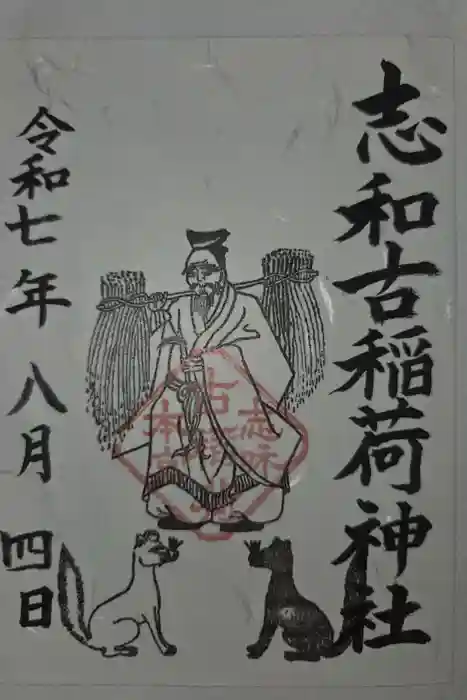 志和古稲荷神社
令和七年 八月 四日